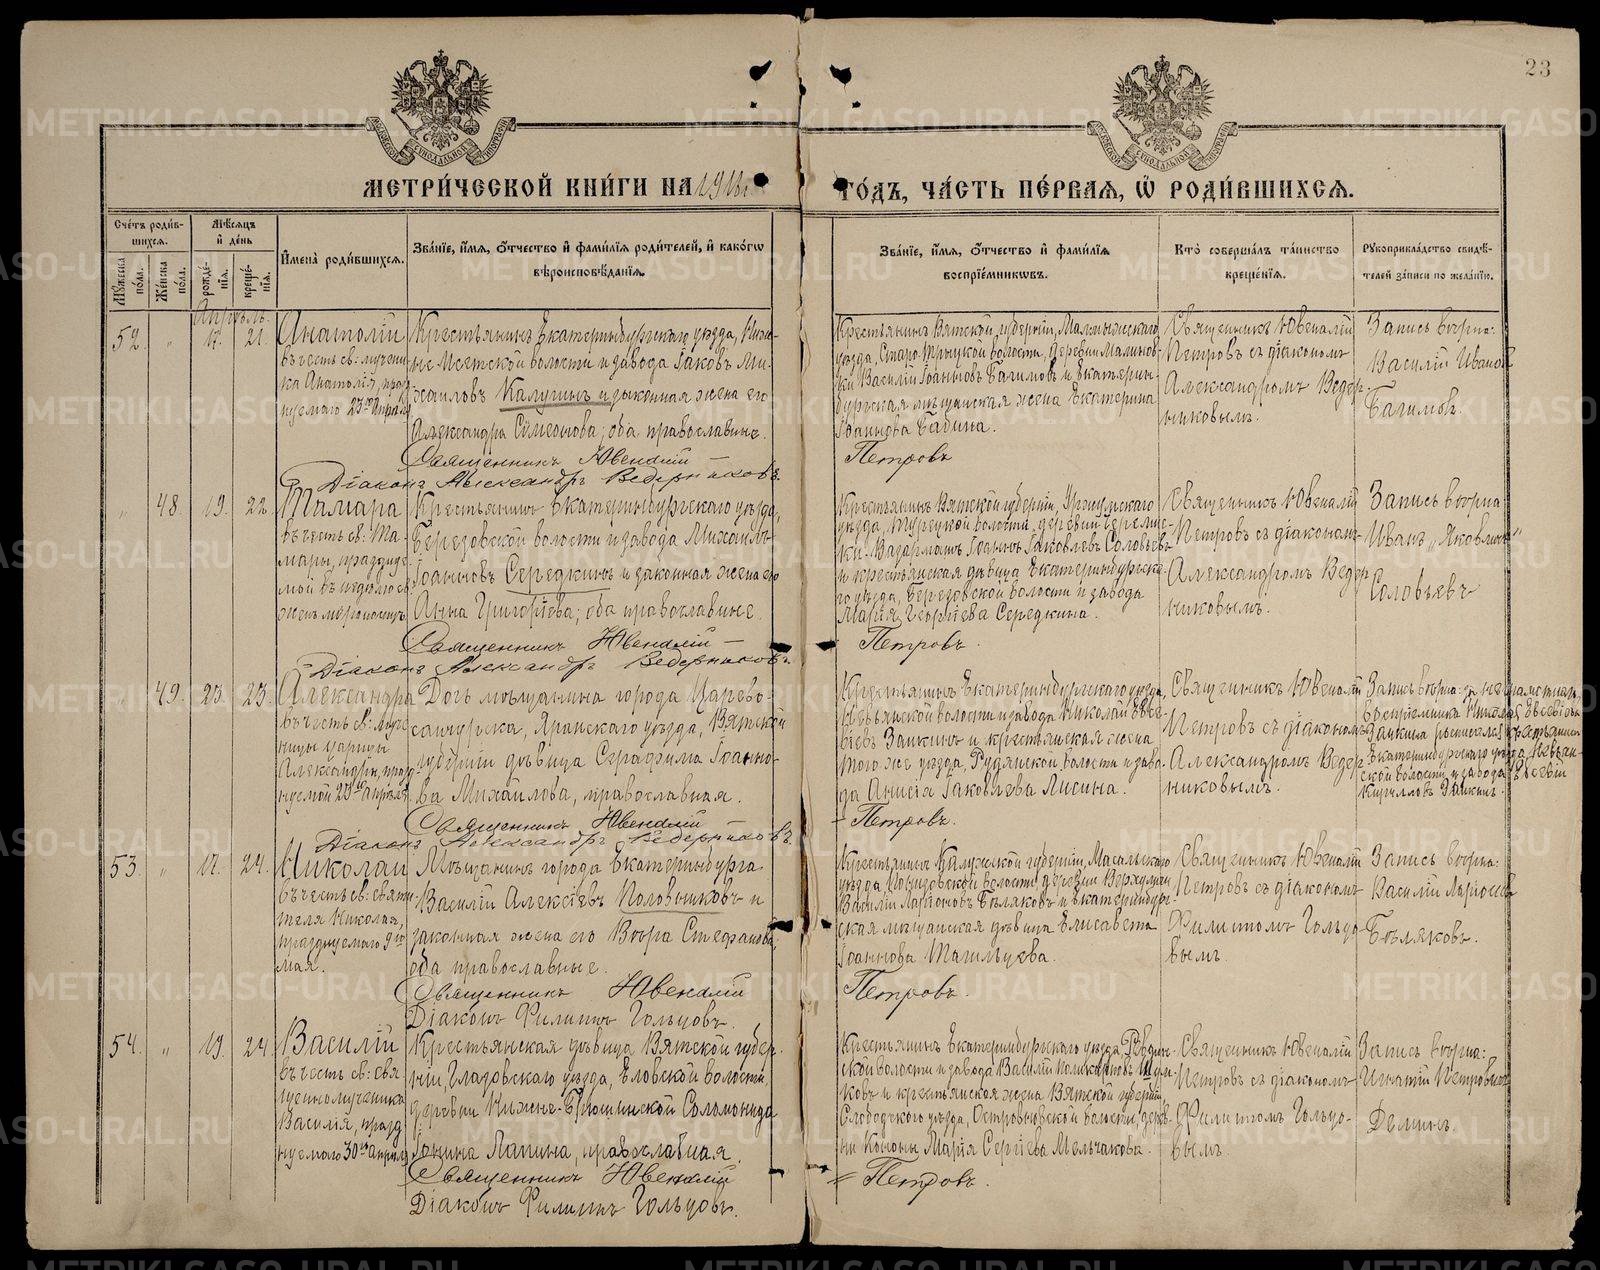 23
МЕТРИ́ЧЕСКОЙ КНИ́ГИ НА 1911 ГО́ДЪ, ЧА́СТЬ ПЕ́РВАЯ, Ѡ҆ РОДИ́ВШИХСЯ.
Сче́тъ роди́в-
шихся.
Мꙋ́жеска по́ла.
Же́нска по́ла.
Мѣ́сяцъ
и҆ де́нь
рожде́-
нїя.
креще́-
нїя.
И҆мена̀ роди́вшихся.
Зва́нїе, и҆́мя, ѻ҆́тчество и҆ фами́лїя роди́телей, и҆ како́гѡ
вѣроисповѣ́данїя.
Зва́нїе, и҆́мя, ѻ҆́тчество и҆ фами́лїя
воспрїе́мникѡвъ.
Кто̀ соверша́лъ та́инство
креще́нїя.
Рꙋкоприкла́дство свидѣ́-
телей за́писи по жела́нїю.
Апрѣль.
52. „ 17. 21.
Анатолій
въ честь св: мучени-
ка Анатолія, празд
нуемаго 23го Апрѣля
Крестьянинъ Екатеринбургскаго уѣзда, Ниж-
не-Исетской волости и завода Іаковъ Ми-
хаиловъ Калугинъ и законная жена его
Александра Симеонова; оба православные.
Священникъ Ювеналій
Діаконъ Александръ Ведерниковъ.
Крестьянинъ Вятской губерніи, Малмыжскаго
уѣзда, Старо-Трыцкой волости, деревни Малинов-
ки Василій Іоанновъ Багимовъ и Екатерин-
бургская мѣщанская жена Екатерина
Іоаннова Бабина.
Петровъ
Священникъ Ювеналій
Петровъ съ діакономъ
Александромъ Ведер-
никовымъ.
Запись вѣрна:
Василій Иванов
Багимовъ.
„ 48. 19. 22.
Тамара
въ честь св: Та-
мары, празднуе-
мой въ недѣлю св.
женъ мѵроносицъ
Крестьянинъ Екатеринбургскаго уѣзда,
Березовской волости и завода Михаилъ
Іоанновъ Середкинъ и законная жена его
Анна Григоріева; оба православные.
Священникъ Ювеналій
Діаконъ Александръ Ведерниковъ.
Крестьянинъ Вятской губерніи, Уржумскаго
уѣзда, Турецкой волости, деревни Черемис-
ки Іоаннъ Іаковлевъ Соловьевъ
и крестьянская дѣвица Екатеринбургска-
го уѣзда, Березовской волости и завода
Марія Георгіева Середкина.
Петровъ.
Священникъ Ювеналій
Петровъ съ діакономъ
Александромъ Ведер-
никовымъ.
Запись вѣрна
Иванъ Яковлевъ
Соловьевъ
„ 49. 23. 23.
Александра
въ честь св: муче-
ницы царицы
Александры, празд-
нуемой 23го Апрѣля
Дочь мѣщанина города Царево-
санчурска, Яранскаго уѣзда, Вятской
губерніи дѣвица Серафима Іоанно-
ва Михаилова, православная.
Священникъ Ювеналій
Діаконъ Александръ Ведерниковъ.
Крестьянинъ Екатеринбургскаго уѣзда,
Невьянской волости и завода Николай Евсе-
віевъ Заикинъ и крестьянская жена
того же уѣзда, Рудянской волости и заво-
да Анисія Іаковлева Лисина.
Петровъ.
Священникъ Ювеналій
Петровъ съ діакономъ
Александромъ Ведер-
никовымъ.
Запись вѣрна: за неграмотнаго
воспріемника Николая Евсевіева
Заикина росписался крестьянинъ
Екатеринбургскаго уѣзда, Невьян-
ской волости и завода Евсевій
Кирилловъ Заикинъ.
53. „ 17. 24.
Николай
въ честь св: святи-
теля Николая,
празднуемаго 9го
мая.
Мѣщанинъ города Екатеринбурга
Василій Алексіевъ Половниковъ и
законная жена его Вѣра Стефанова;
оба православные.
Священникъ Ювеналій
Діаконъ Филиппъ Гольцовъ.
Крестьянинъ Калужской губерніи, Масальскаго
уѣзда, волости, деревни
Василій Ларіоновъ Бѣляковъ и Екатеринбург-
ская мѣщанская дѣвица Елисавета
Іоаннова Тагильцева.
Петровъ.
Священникъ Ювеналій
Петровъ съ діакономъ
Филиппомъ Гольцо-
вымъ.
Запись вѣрна:
Василій Ларіонов
Бѣляковъ.
54. „ 19. 24
Василій
въ честь св: свя
щенномученика
Василія, празд
нуемаго 30го апрѣля
Крестьянская дѣвица Вятской губер-
ніи, Глазовскаго уѣзда, Еловской волости,
деревни Нижне- Соломонида
Іонина Лапина, православная.
Священникъ Ювеналій
Діаконъ Филиппъ Гольцовъ.
Крестьянинъ Екатеринбургскаго уѣзда, Ревдин-
ской волости и завода Василій Поликарповъ
и крестьянская жена Вятской губерніи,
Слободского уѣзда, Островновской волости, дерев-
ни Кононы Марія Сергіева Мельчакова.
Петровъ.
Священникъ Ювеналій
Петровъ съ діакономъ
Филиппомъ Гольцо-
вымъ.
Запись вѣрна:
Игнатій Петровичъ
Деминъ.
METRIKI.GASO-URAL.RU